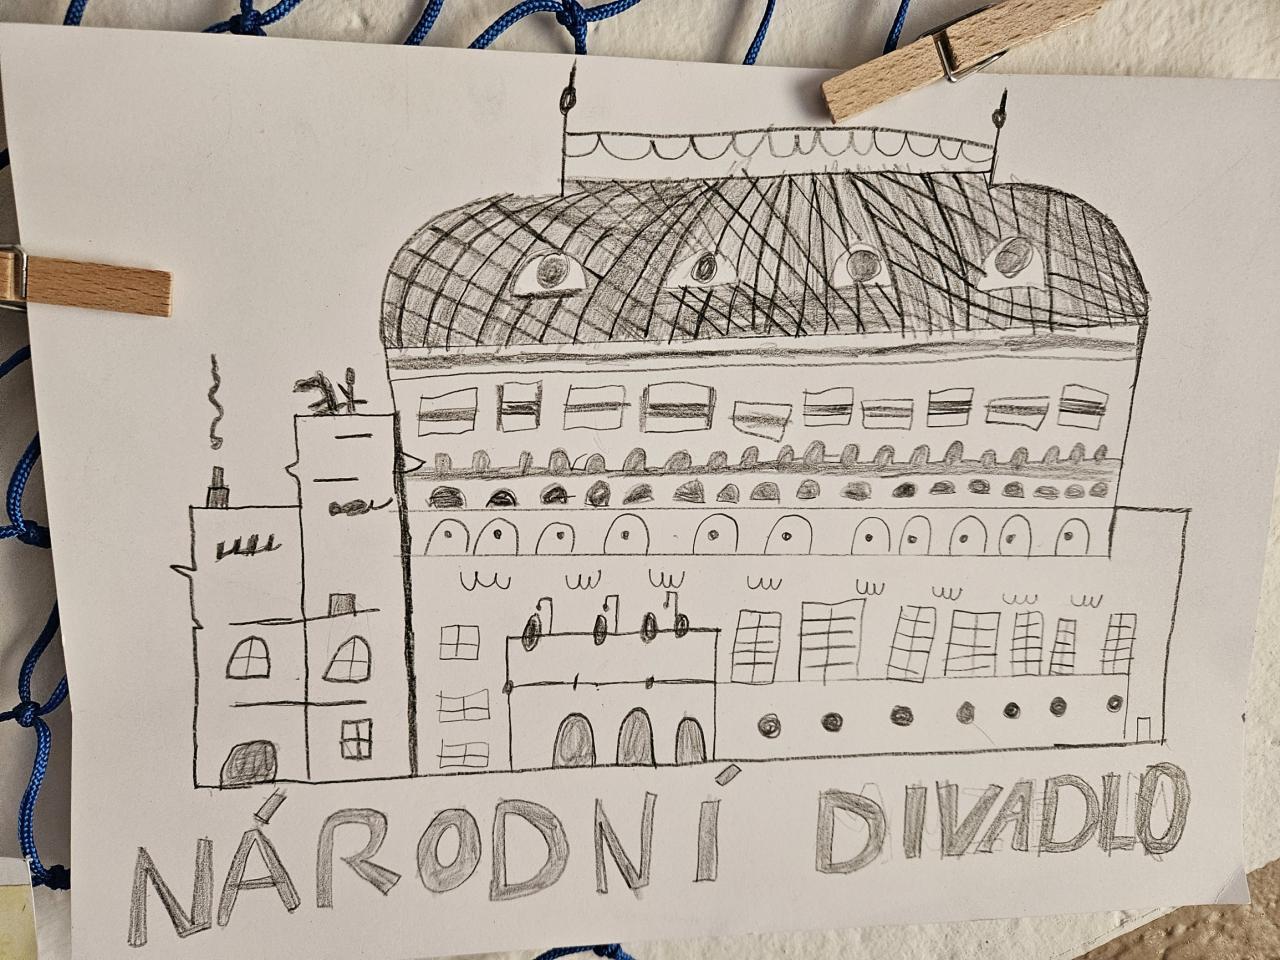 NÁRODNÍ DIVADLO